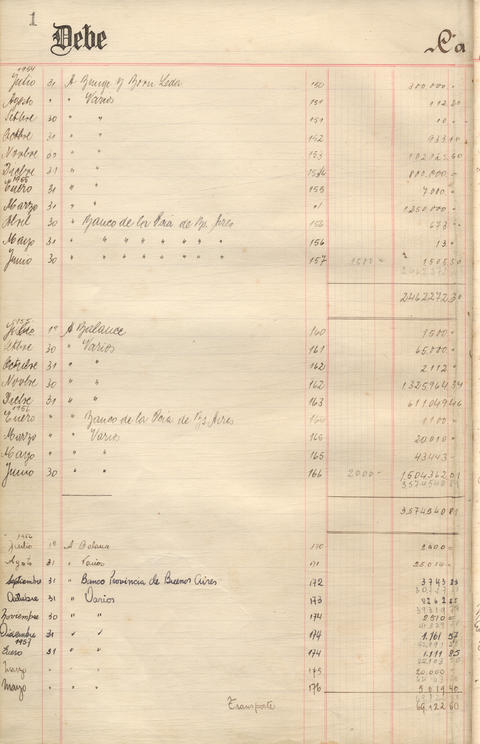 1
Debe
Ca
1954
Julio 31 A Bunge y Born Ltda 150 300.000 -
Agosto " " Varios 151 112 20
Setbre 30 " " 151 10 -
Octbre 31 " " 152
Novbre " " 153 102.125 60
Dicbre 31 " " 154 800.000 -
1955
Enero 31 " " 155 7.000 -
Marzo 31 " " " 1.250.000 -
Abril 30 " Banco de la Pcia de Bs. Aires 156 673 -
Mayo 31 " " " " " " " 156 13 -
Junio 30 " " " " " " " 157 1500 - 1.505 50
2462272 30
1955
Julio 1º A Balance 160 1.500 -
Octbre 30 " Varios 161 65.000 -
Octubre 31 " " 162 2.112 -
Novbre 30 " " 162 1.325.964 34
Dicbre 31 " " 163 611.049 46
1956
Enero " " Banco de la Pcia de Bs. Aires 164 1.100 -
Marzo " " Varios 165 20.010 -
Mayo " " " 165 43.443 -
Junio 30 " " 166 2000 - 1.504.362 01
3.574.540 81
3.574.540 81
1956
Julio 1º A Balance 170
Agosto 31 " Varios 171 25.014 -
Septiembre 31 " Banco Provincia de Buenos Aires 172 3.743 23
Octubre 31 " Varios 173 8.262 25
Noviembre 30 " " 174 2.510 -
Diciembre 31 " " 174 1.161 57
1957
Enero 31 " " 174 1.111 85
Marzo " " 175 20.000 -
Mayo " " " 176 5.019 40
Transporte 69.122 60